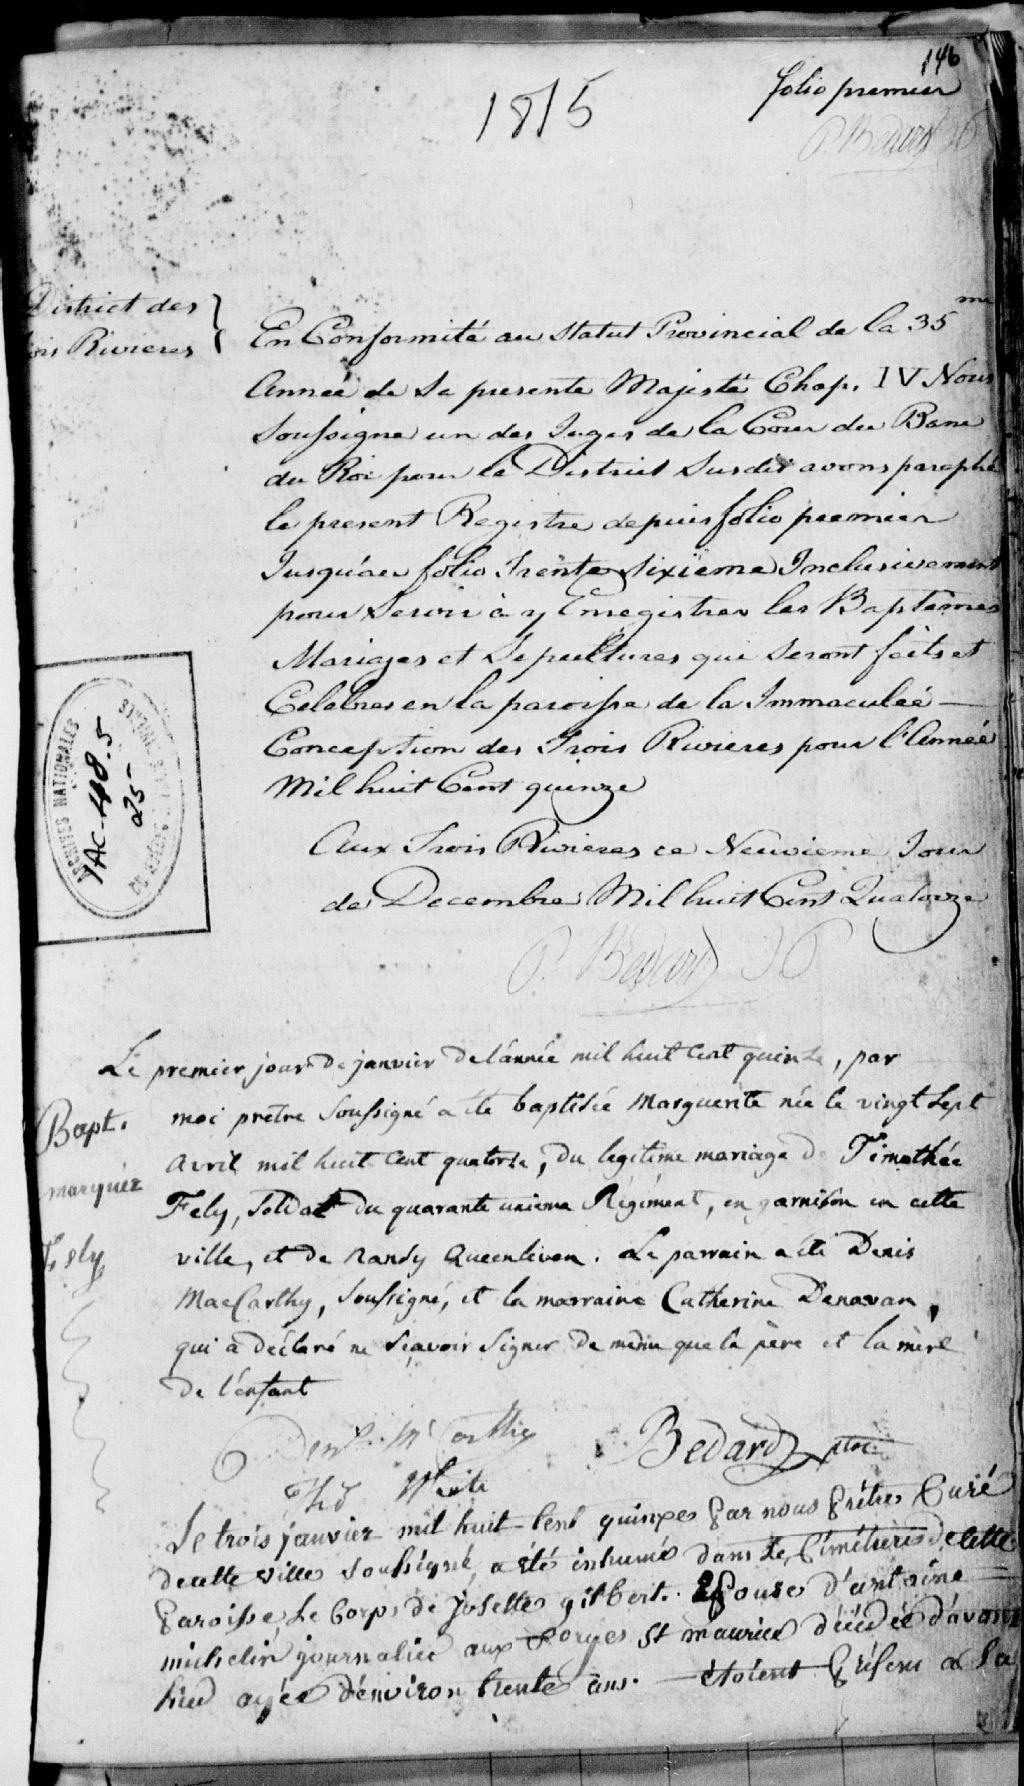 146
1815
folio premier
P. Bedard JB
District des
ois Rivieres
En Conformité au Statut Provincial de la 35 me
Année de Sa presente Majesté Chap. IV Nous
Soussigné un des Juges de la Cour du Banc
du Roi pour le District Susdit avons paraphé
le present Registre depuis folio premier
Jusqu'au folio Trente Sixième Inclusivement
pour Servir à y Enregistrer les Baptêmes
Mariages et Sepultures qui Seront faits et
Celebres en la paroisse de la Immaculeé
Conception des Trois Rivieres pour l'Anneé
Mil huit Cent quinze
Aux Trois Rivieres ce Neuvieme Jour
de Decembre Mil huit Cent Quatorze
P. Bedard JB
ARCHIVES NATIONALES
1AC-48.5
25-
Le premier jour de janvier de l'année mil huit cent quinze, par
Bapt.
moi prêtre Soussigné a été baptisée Marguerite née le vingt Sept
avril mil huit cent quatorze, du légitime mariage de Timothée
marguer
Fely, Soldat du quarante unieme Régiment, en garnison en cette
Fely
ville, et de Nandy Queenliven. Le parrain a été Denis
MacCarthy, Soussigné, et la marraine Catherine Denavan,
qui a déclaré ne Sçavoir Signer de même que le père et la mère
de l'enfant
Denis McCarthy
Bedard ptre
Thos White
Le trois janvier mil huit Cent quinze par nous prêtre Curé
de cette ville soussigné, a été inhumé dans le Cimétière de cette
paroisse le Corps de Josette gilbert. Epouse d'antoine
michelin journalier aux Forges St maurice décédée d'avant
hier agée d'environ trente ans. étoient présens a la